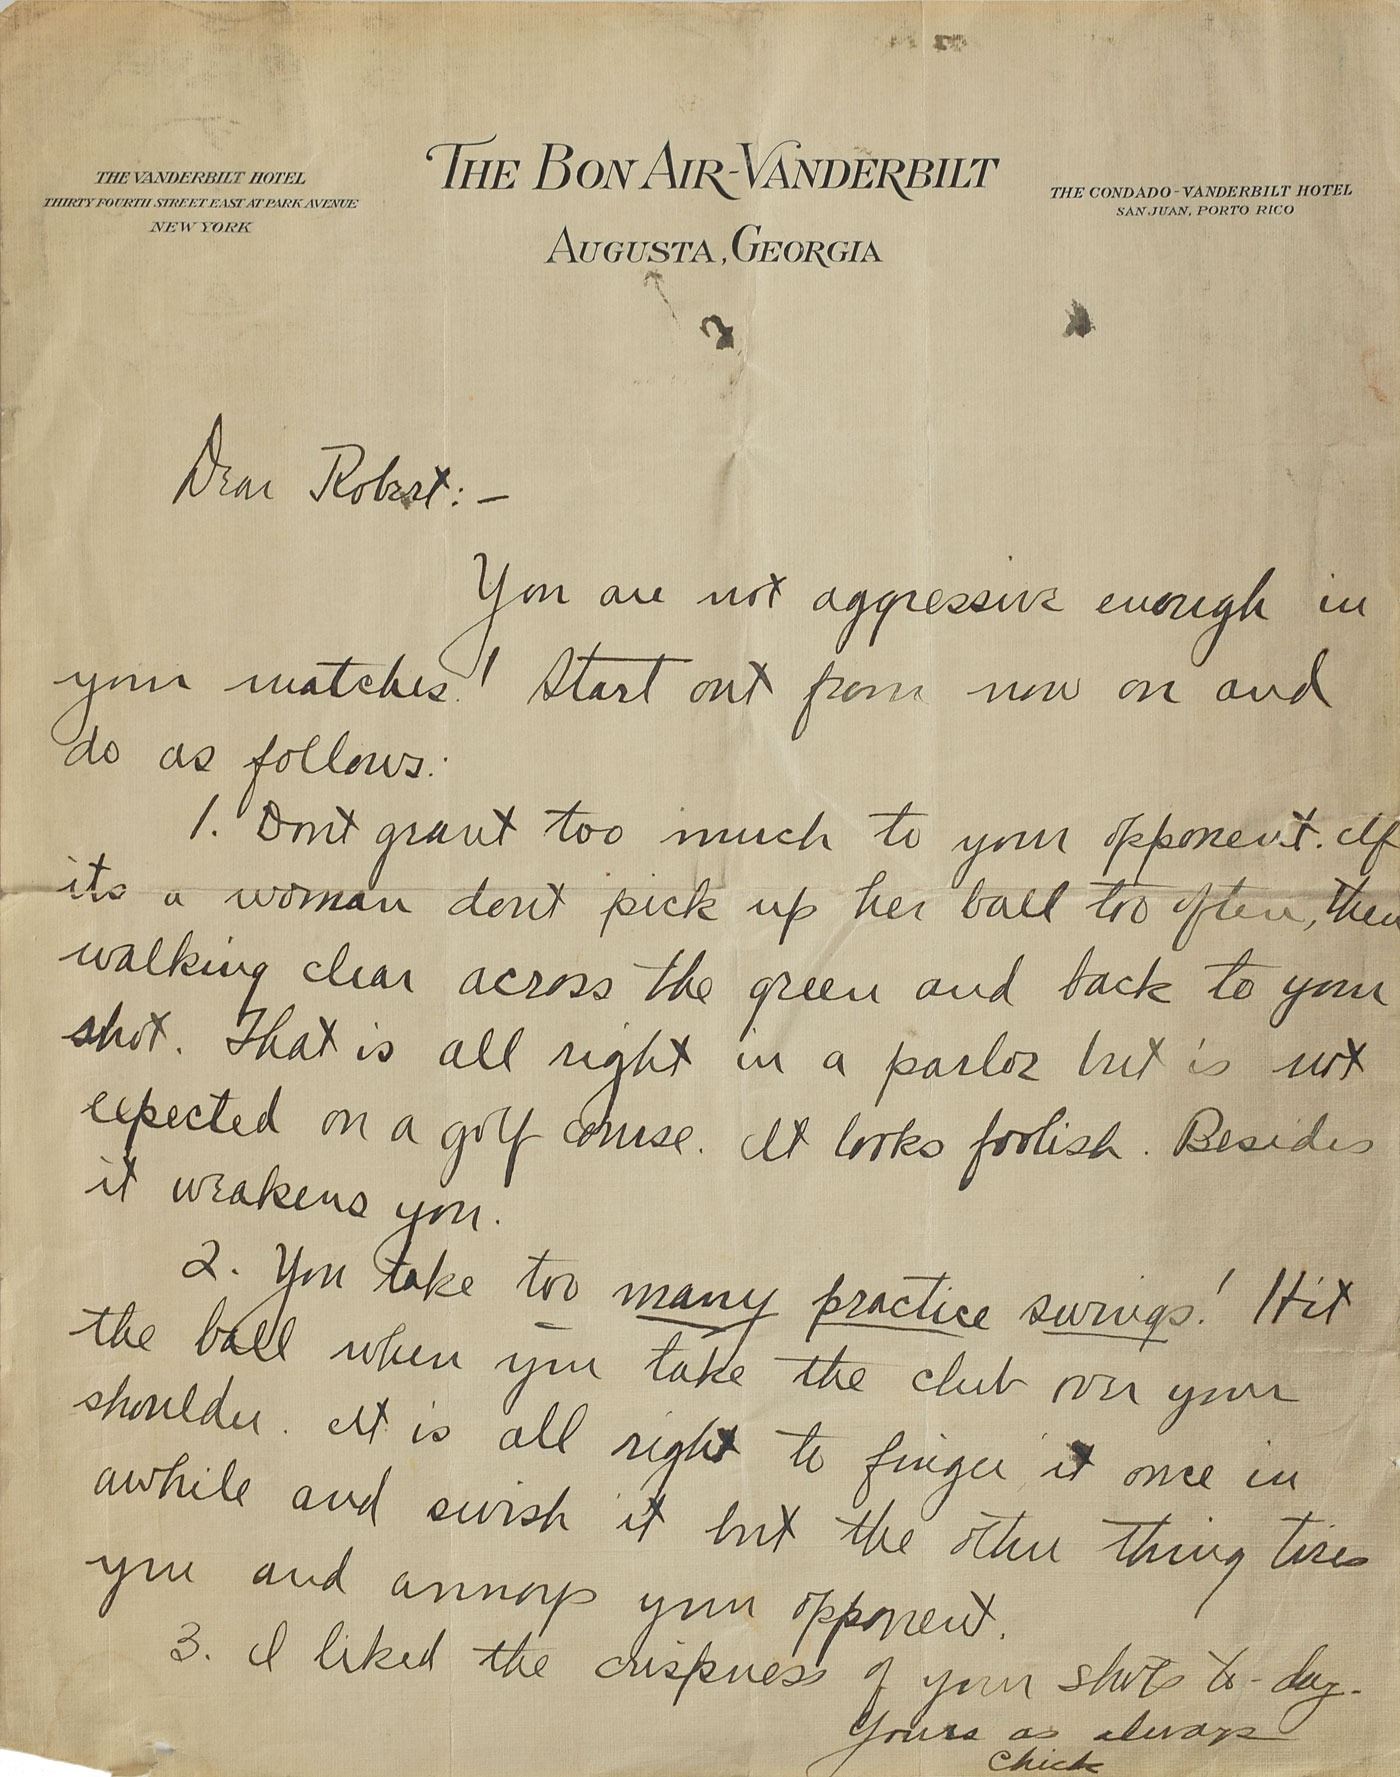 THE VANDERBILT HOTEL
THIRTY FOURTH STREET EAST AT PARK AVENUE
NEW YORK
THE BON AIR-VANDERBILT
AUGUSTA, GEORGIA
THE CONDADO-VANDERBILT HOTEL
SAN JUAN, PORTO RICO
Dear Robert:-
You are not aggressive enough in
your matches! Start out from now on and
do as follows:
1. Dont grant too much to your opponent. If
its a woman dont pick up her ball too often, then
walking clear across the green and back to your
shot. That is all right in a parlor but is not
expected on a golf course. It looks foolish. Besides
it weakens you.
2. You take too many practice swings! Hit
the ball when you take the club over your
shoulder. It is all right to finger it once in
awhile and swish it but the other thing tires
you and annoys your opponent.
3. I liked the crispness of your shots to-day.
Yours as always
Chick